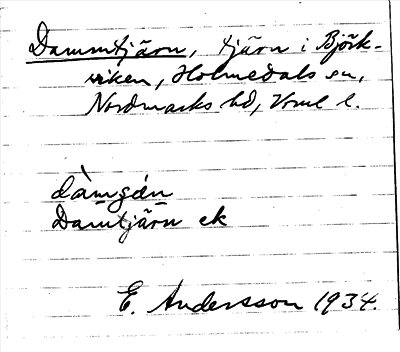 Dammtjärn, tjärn i Björk-
viken, Holmedals sn,
Nordmarks hd, Vrml l.
dàmgǽn
Damtjärn ek
E. Andersson 1934.